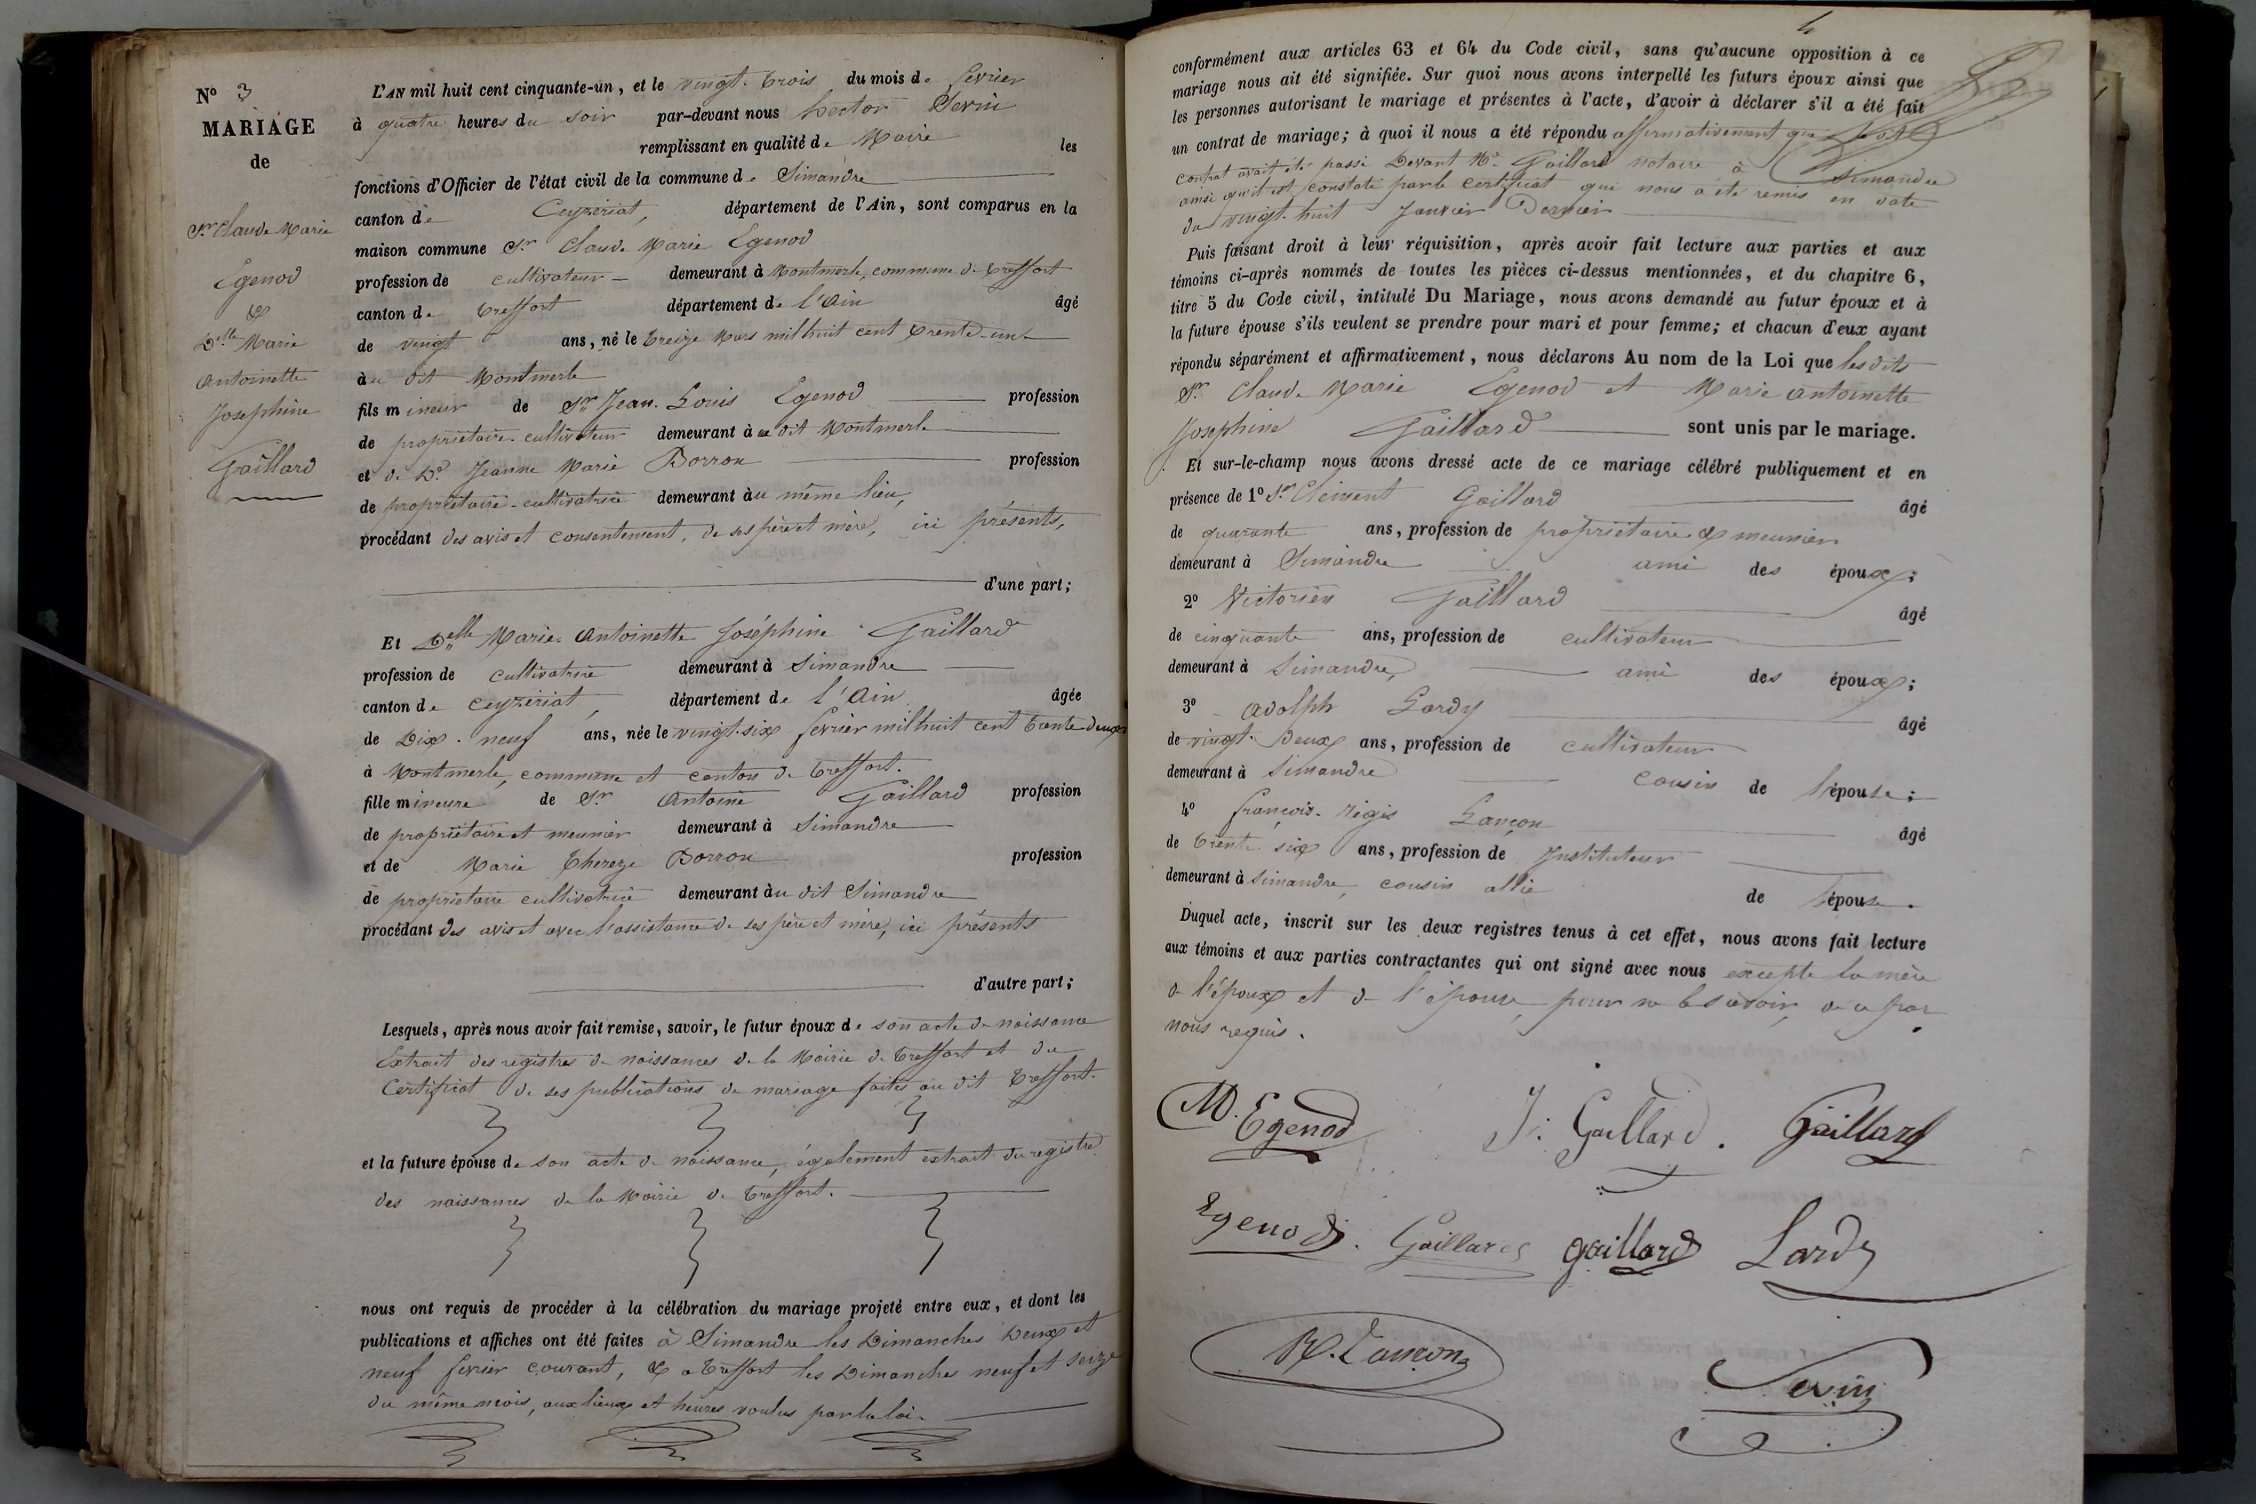 N° 3
MARIAGE
de
Sr Claude Marie
Egenod
&
Delle Marie
Antoinette
Josephine
Gaillard
L'AN mil huit cent cinquante-un, et le vingt-trois du mois de fevrier
à quatre heures du soir par-devant nous hector Servin
remplissant en qualité de Maire les
fonctions d'Officier de l'état civil de la commune de Simandre
canton de Ceyzériat, département de l'Ain, sont comparus en la
maison commune Sr Claude Marie Egenod
profession de cultivateur demeurant à Montmerle, commune de treffort
canton de treffort département de l'Ain âgé
de vingt ans, né le treize Mars mil huit cent trente-un
à u dit Montmerle
fils mineur de Sr Jean Louis Egenod profession
de propriétaire-cultivateur demeurant à u dit Montmerle
et de De Jeanne Marie Borron profession
de propriétaire-cultivatrice demeurant à u même lieu,
procédant des avis et consentement, de ses père et mère, ici présents,
d'une part;
Et Delle Marie Antoinette Joséphine Gaillard
profession de cultivatrice demeurant à Simandre
canton de Ceyzériat, département de l'Ain âgée
de Dix-neuf ans, née le vingt-six fevrier mil huit cent trente-deux
à Montmerle, commune et canton de treffort.
fille mineure de Sr Antoine Gaillard profession
de propriétaire et meunier demeurant à Simandre
et de Marie Thereze Borron profession
de propriétaire cultivatrice demeurant à u dit Simandre
procédant des avis et avec l'assistance de ses père et mère, ici présents
d'autre part;
Lesquels, après nous avoir fait remise, savoir, le futur époux de son acte de naissance
Extrait des registres de naissances de la Mairie de treffort et du
Certificat de ses publications de mariage faites au dit treffort.
et la future épouse de son acte de naissance, également extrait du registre
des naissances de la Mairie de treffort.
nous ont requis de procéder à la célébration du mariage projeté entre eux, et dont les
publications et affiches ont été faites à Simandre les Dimanches Deux et
neuf fevrier courant, & a treffort les Dimanches neuf et seize
du même mois, aux lieux et heures voulus par la loi.
4
conformément aux articles 63 et 64 du Code civil, sans qu'aucune opposition à ce
mariage nous ait été signifiée. Sur quoi nous avons interpellé les futurs époux ainsi que
les personnes autorisant le mariage et présentes à l'acte, d'avoir à déclarer s'il a été fait
un contrat de mariage; à quoi il nous a été répondu affirmativement que
contrat avait été passé Devant Me Gaillard notaire à Simandre
ainsi qu'il est constaté par le certificat qui nous a été remis en date
du vingt-huit Janvier Dernier
Puis faisant droit à leur réquisition, après avoir fait lecture aux parties et aux
témoins ci-après nommés de toutes les pièces ci-dessus mentionnées, et du chapitre 6,
titre 5 du Code civil, intitulé Du Mariage, nous avons demandé au futur époux et à
la future épouse s'ils veulent se prendre pour mari et pour femme; et chacun d'eux ayant
répondu séparément et affirmativement, nous déclarons Au nom de la Loi que les dits
Sr Claude Marie Egenod et Marie Antoinette
Josephine Gaillard sont unis par le mariage.
Et sur-le-champ nous avons dressé acte de ce mariage célébré publiquement et en
présence de 1° Sr Clément Gaillard âgé
de quarante ans, profession de propriétaire & meunier
demeurant à Simandre ami des époux;
2° Victorien Gaillard âgé
de cinquante ans, profession de cultivateur
demeurant à Simandre, ami des époux;
3° Adolph Lardy âgé
de vingt-Deux ans, profession de cultivateur
demeurant à Simandre cousin de l'épouse;
4° françois-régis Lançon âgé
de trente-six ans, profession de Instituteur
demeurant à Simandre, cousin allié de l'épouse.
Duquel acte, inscrit sur les deux registres tenus à cet effet, nous avons fait lecture
aux témoins et aux parties contractantes qui ont signé avec nous excepté la mère
de l'époux et de l'épouse, pour ne le savoir, de ce par
nous requis.
M. Egenod J. Gaillard. Gaillard
Egenod. Gaillard gaillard Lardy
R. Lançon
Servin